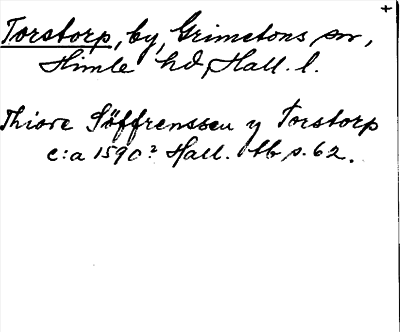 +
Torstorp, by, Grimetons sn,
Himle hd, Hall. l.
Thiore Söffrenssen y Torstorp
c:a 1590? Hall. tb s. 62.